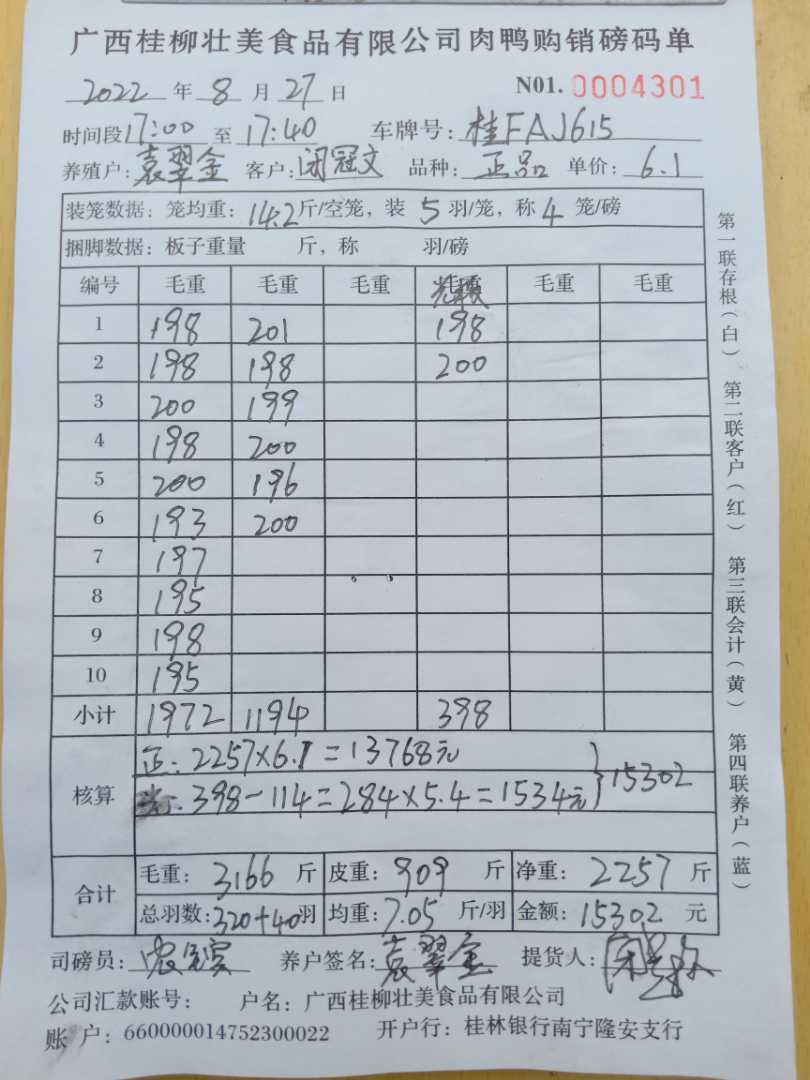 广西桂柳壮美食品有限公司肉鸭购销磅码单
2022 年 8 月 27 日 N01. 0004301
时间段17:00 至 17:40 车牌号: 桂FAJ615
养殖户: 袁翠金 客户: 闭冠文 品种: 正品 单价: 6.1
装笼数据: 笼均重: 14.2 斤/空笼, 装 5 羽/笼, 称 4 笼/磅
捆脚数据: 板子重量 斤, 称 羽/磅
编号 毛重 毛重 毛重 毛重 毛重 毛重
1 198 201 198
2 198 198 200
3 200 199
4 198 200
5 200 196
6 193 200
7 197
8 195
9 198
10 195
小计 1972 1194 398
核算 正: 2257×6.1=13768元
398-114=284×5.4=1534元 } 15302
合计 毛重: 3166 斤 皮重: 909 斤 净重: 2257 斤
总羽数: 320+40羽 均重: 7.05 斤/羽 金额: 15302 元
司磅员: 养户签名: 袁翠金 提货人:
公司汇款账号: 户名: 广西桂柳壮美食品有限公司
账 户: 660000014752300022 开户行: 桂林银行南宁隆安支行
第一联存根(白) 第二联客户(红) 第三联会计(黄) 第四联养户(蓝)